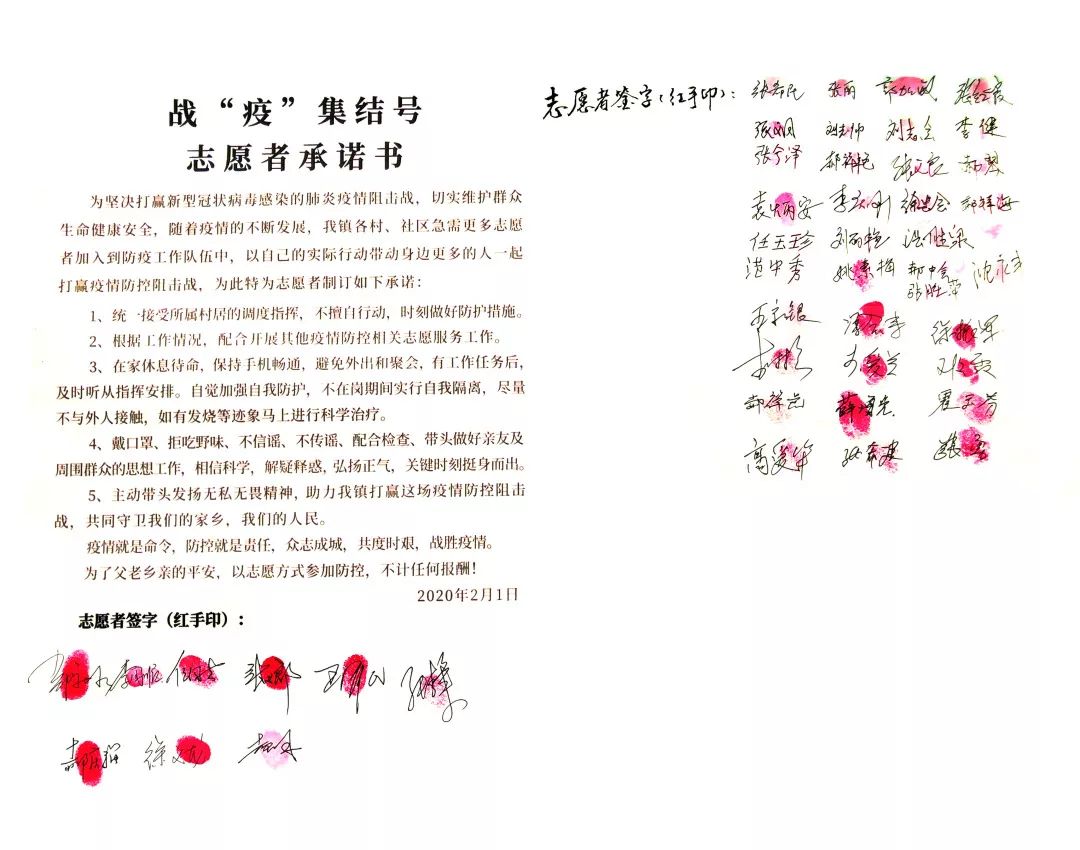 战“疫”集结号
志愿者承诺书
为坚决打赢新型冠状病毒感染的肺炎疫情阻击战，切实维护群众
生命健康安全，随着疫情的不断发展，我镇各村、社区急需更多志愿
者加入到防疫工作队伍中，以自己的实际行动带动身边更多的人一起
打赢疫情防控阻击战，为此特为志愿者制订如下承诺：
1、统一接受所属村居的调度指挥，不擅自行动，时刻做好防护措施。
2、根据工作情况，配合开展其他疫情防控相关志愿服务工作。
3、在家休息待命，保持手机畅通，避免外出和聚会，有工作任务后，
及时听从指挥安排。自觉加强自我防护，不在岗期间实行自我隔离，尽量
不与外人接触，如有发烧等迹象马上进行科学治疗。
4、戴口罩、拒吃野味、不信谣、不传谣、配合检查、带头做好亲友及
周围群众的思想工作，相信科学，解疑释惑，弘扬正气，关键时刻挺身而出。
5、主动带头发扬无私无畏精神，助力我镇打赢这场疫情防控阻击
战，共同守卫我们的家乡，我们的人民。
疫情就是命令，防控就是责任，众志成城，共度时艰，战胜疫情。
为了父老乡亲的平安，以志愿方式参加防控，不计任何报酬！
2020年2月1日
志愿者签字（红手印）：
志愿者签字（红手印）：
张希民 张丽
刘志帅 刘志全 李健
张令泽
袁炳安 郝祥海
任玉珍 刘丽艳
范中秀 姚素梅 沈永方
张胜荣
郝祥芝
高爱华